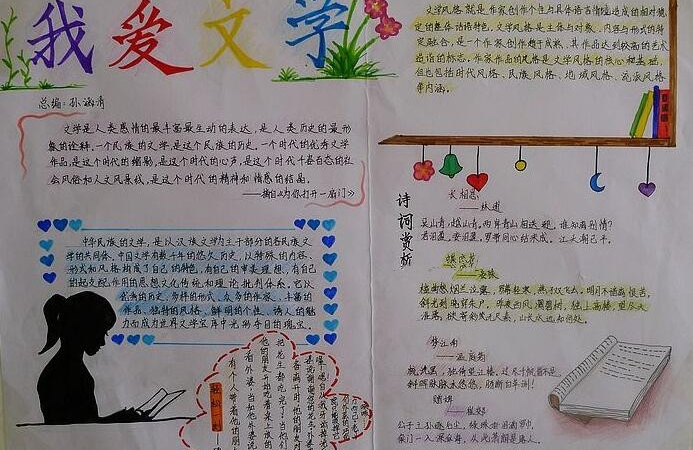 我爱文学
总编:孙涵清
文学是人类感情的最丰富最生动的表达,是人类历史的最形
象的诠释,一个民族的文学,是这个民族的历史。一个时代的优秀文学
作品,是这个时代的缩影,是这个时代的心声,是这个时代千姿百态的社
会风俗和人文风景线,是这个时代的精神和情感的结晶。
——摘自《为你打开一扇门》
中华民族的文学,是以汉族文学为主干部分的各民族文
学的共同体。中国文学有数千年的悠久历史,以特殊的内容、
形式和风格构成了自己的特色,有自己的审美理想,有自己
的起支配作用的思想文化传统和理论批判体系。它以
优秀的历史、多样的形式、众多的作家、丰富的
作品、独特的风格、鲜明的个性、诱人的魅
力而成为世界文学宝库中光彩夺目的瑰宝。
轻松一刻
文学风格,就是作家创作个性与具体话语情境造成的相对稳
定的整体话语特色。文学风格是主体与对象、内容与形式的特
定融合,是一个作家创作趋于成熟、其作品达到较高的艺术
造诣的标志。作家作品的风格是文学风格的核心和基础,
但也包括时代风格、民族风格、地域风格、流派风格
等内涵。
诗词赏析
长相思
——林逋
吴山青,越山青。两岸青山相送迎,谁知离别情?
君泪盈,妾泪盈。罗带同心结未成,江头潮已平。
蝶恋花
——晏殊
槛菊愁烟兰泣露,罗幕轻寒,燕子双飞去。明月不谙离恨苦,
斜光到晓穿朱户。昨夜西风凋碧树,独上高楼,望尽天
涯路。欲寄彩笺无尺素,山长水远知何处。
梦江南
——温庭筠
梳洗罢,独倚望江楼。过尽千帆皆不是,
斜晖脉脉水悠悠,肠断白苹洲!
赠婢
——崔郊
公子王孙逐后尘,绿珠垂泪滴罗巾。
侯门一入深似海,从此萧郎是路人。